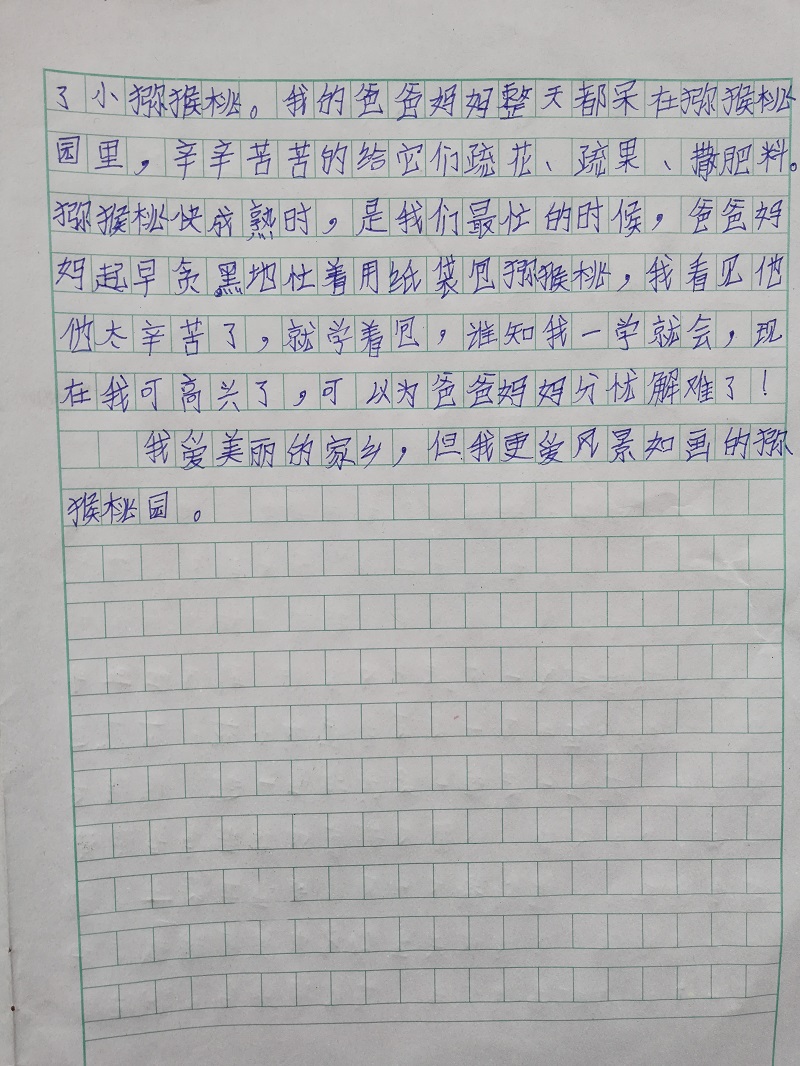 了小猕猴桃。我的爸爸妈妈整天都呆在猕猴桃
园里，辛辛苦苦的给它们疏花、疏果、撒肥料。
猕猴桃快成熟时，是我们最忙的时候，爸爸妈
妈起早贪黑地忙着用纸袋包猕猴桃，我看见他
他太辛苦了，就学着包，谁知我一学就会，现
在我可高兴了，可以为爸爸妈妈分忧解难了！
我爱美丽的家乡，但我更爱风景如画的猕
猴桃园。